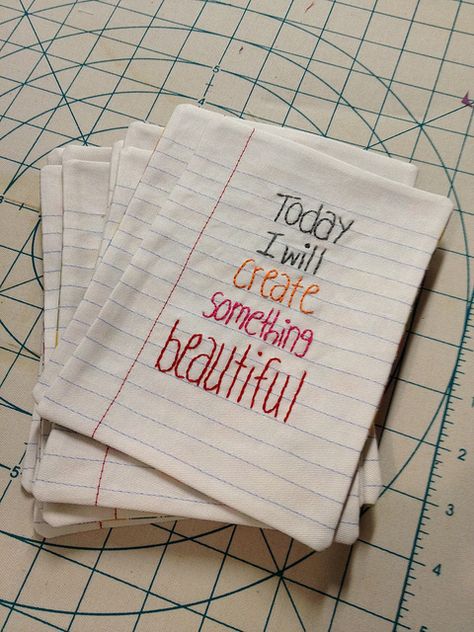 Today
I will
create
something
beautiful
5
5
5
2
3
4